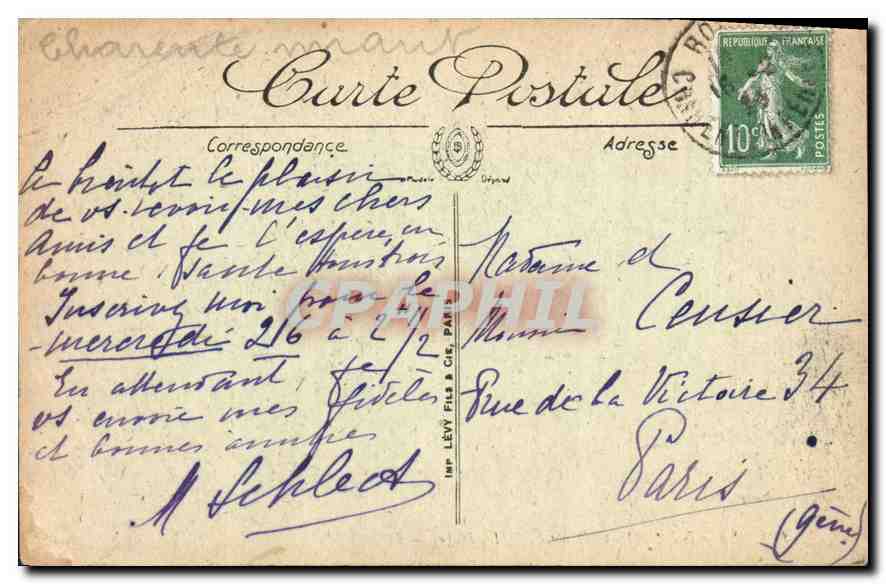 Charente
Carte Postale
Correspondance
Adresse
RÉPUBLIQUE FRANÇAISE
10c
POSTES
le plaisir
de vs revoir mes chers
Amis et je l'espère, en
bonne santé tous trois
Inscrivez moi pour le
mercredi 26 à 2h 1/2
En attendant, je
vs envoie mes fidèles
et bonnes amitiés
M Schlect
IMP. LÉVY FILS & CIE, PARIS
CPAPHIL
Madame et
Monsieur Censier
Rue de la Victoire 34
Paris
(9ème)